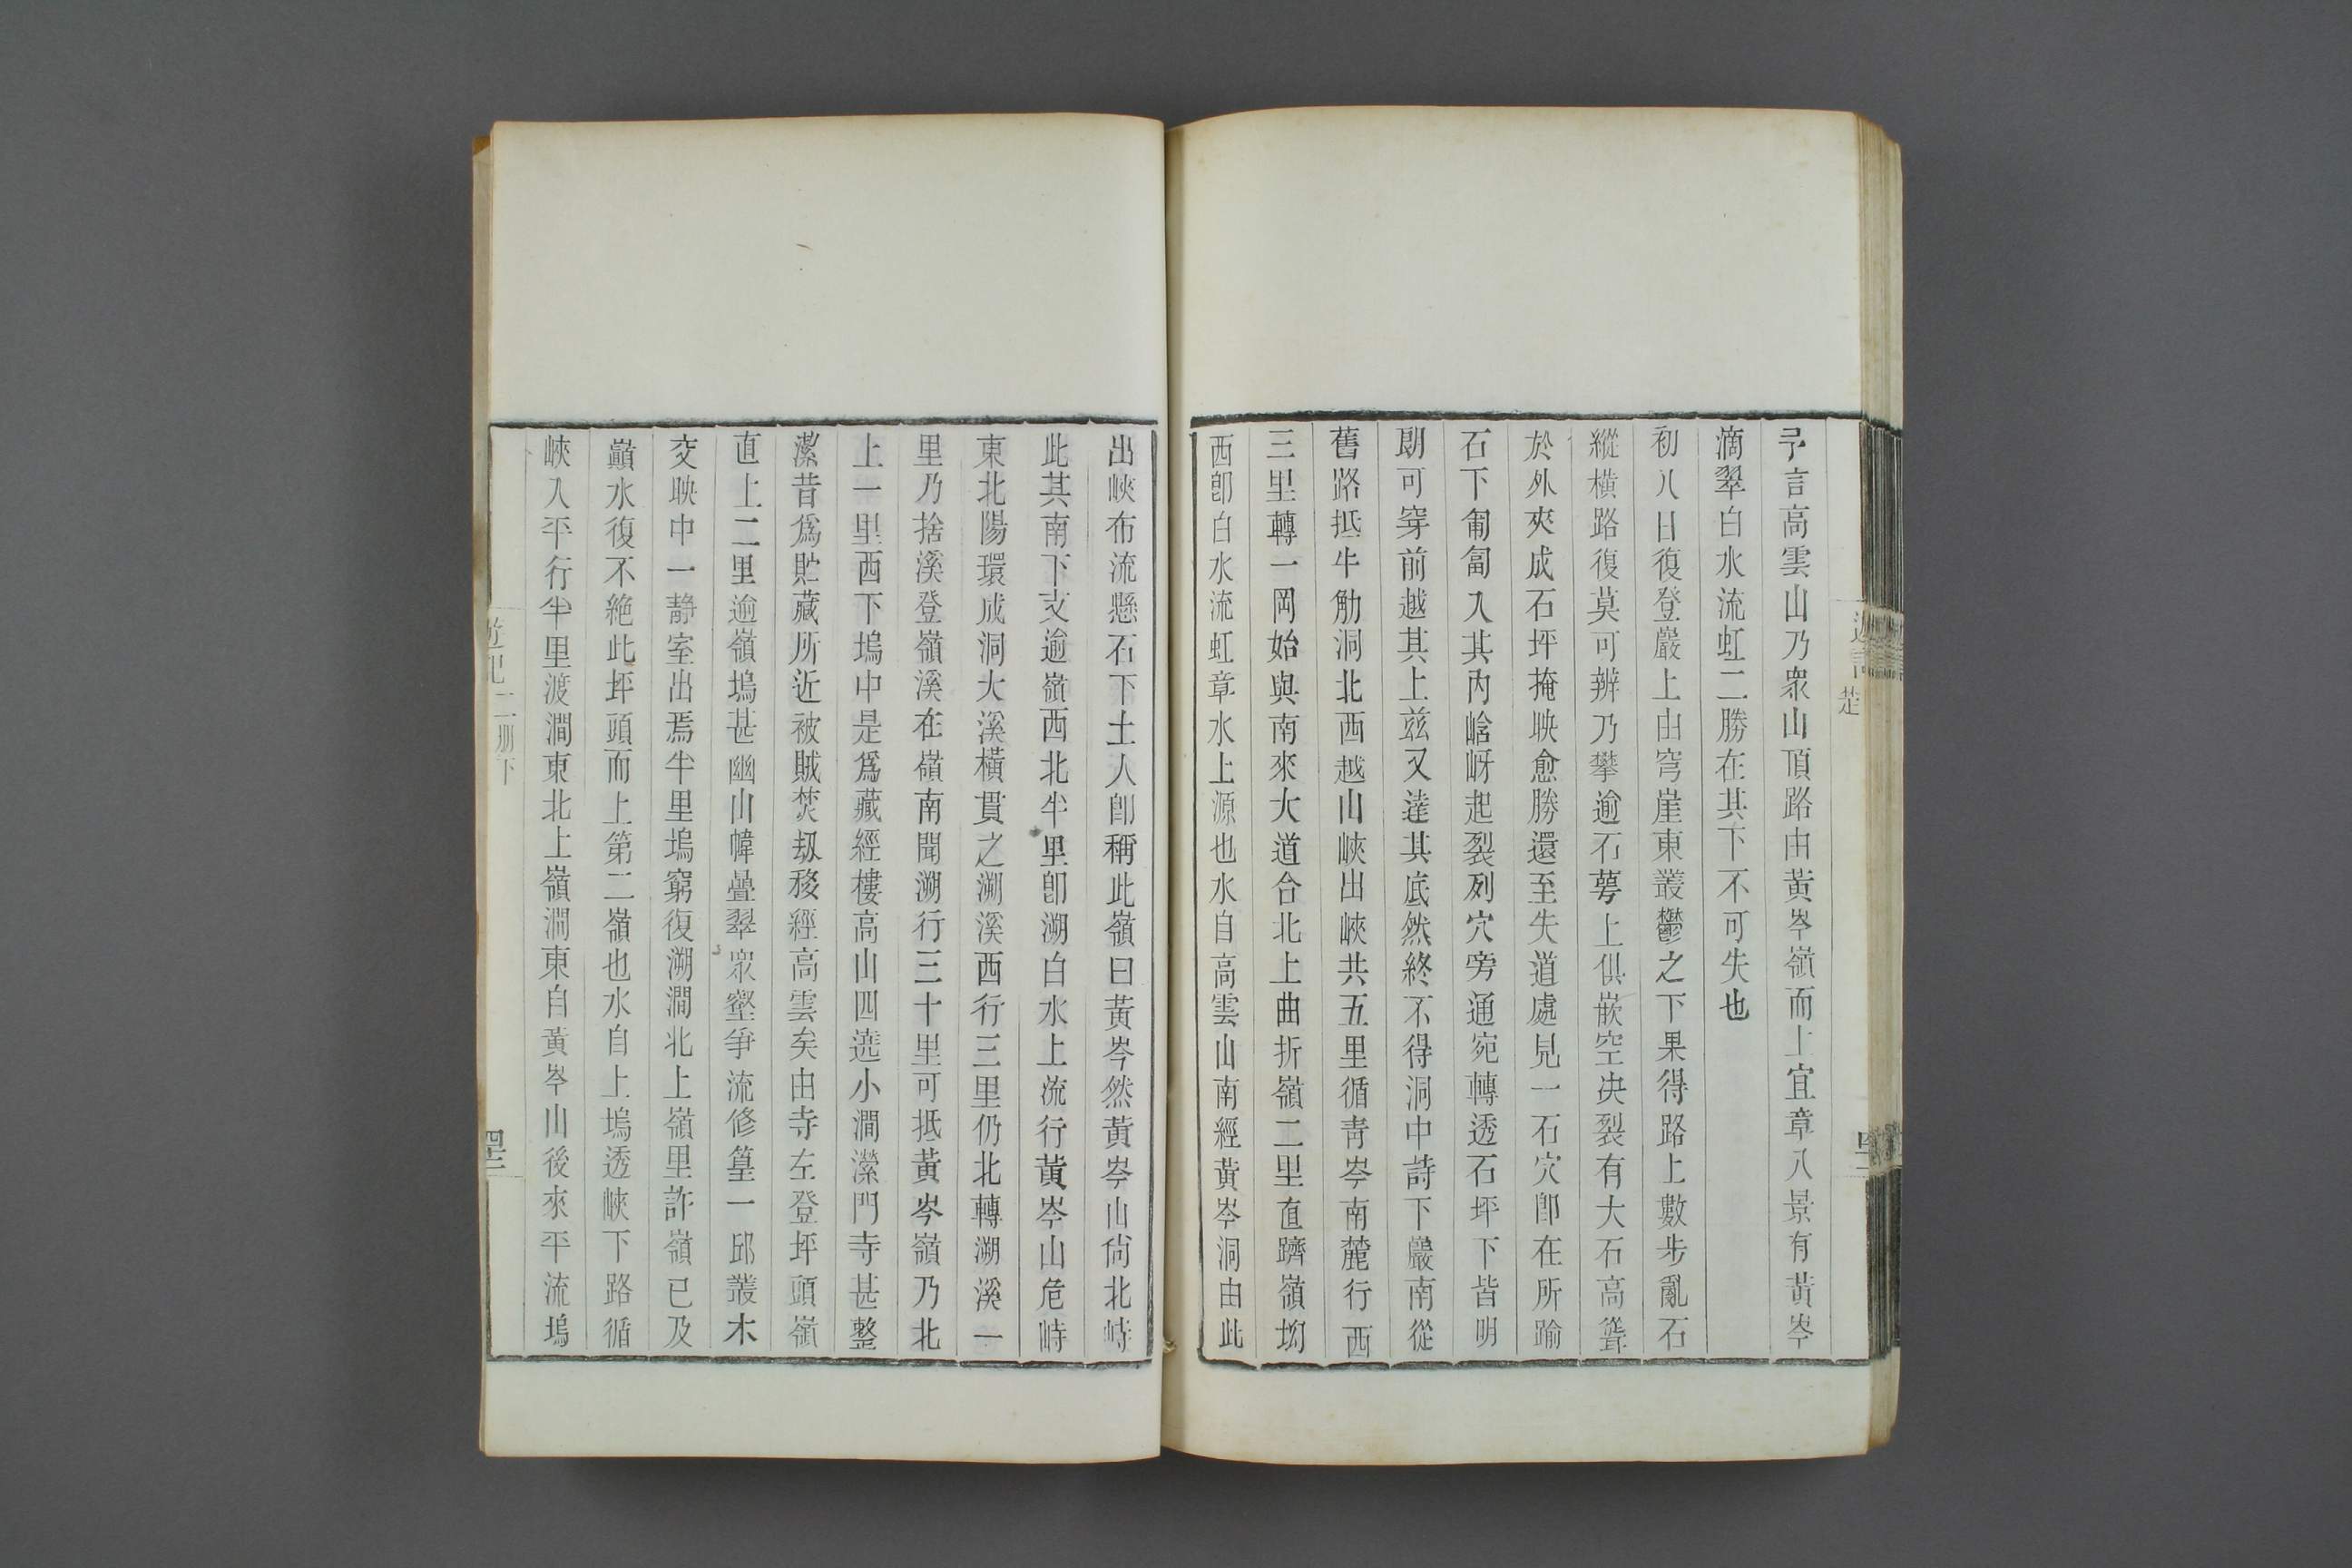 予言高雲山乃衆山頂路由黃岑嶺而上宜章八景有黃岑
滴翠白水流虹二勝在其下不可失也
初八日復登巖上由穹崖東叢鬱之下果得路上數步亂石
縱橫路復莫可辨乃攀逾石萼上俱嵌空决裂有大石高聳
於外夾成石坪掩映愈勝還至失道處見一石穴卽在所踰
石下匍匐入其內崆岈起裂列穴旁通宛轉透石坪下皆明
朗可穿前越其上兹又達其底然終不得洞中詩下巖南從
舊路抵牛觔洞北西越山峽出峽共五里循靑岑南麓行西
三里轉一岡始與南來大道合北上曲折嶺二里直躋嶺坳
西卽白水流虹章水上源也水自高雲山南經黃岑洞由此
出峽布流懸石下土人卽稱此嶺曰黃岑然黃岑山尙北峙
此其南下支逾嶺西北半里卽溯白水上流行黃岑山危峙
東北陽環成洞大溪橫貫之溯溪西行三里仍北轉溯溪一
里乃捨溪登嶺溪在嶺南聞溯行三十里可抵黃岑嶺乃北
上一里西下塢中是爲藏經樓高山四遶小澗瀠門寺甚整
潔昔爲貯藏所近被賊焚刼移經高雲矣由寺左登坪頭嶺
直上二里逾嶺塢甚幽山幃疊翠衆壑爭流修篁一邱叢木
交映中一靜室出焉半里塢窮復溯澗北上嶺里許嶺已及
巔水復不絕此坪頭而上第二嶺也水自上塢透峽下路循
峽入平行半里渡澗東北上嶺澗東自黃岑山後來平流塢
遊記 二册下